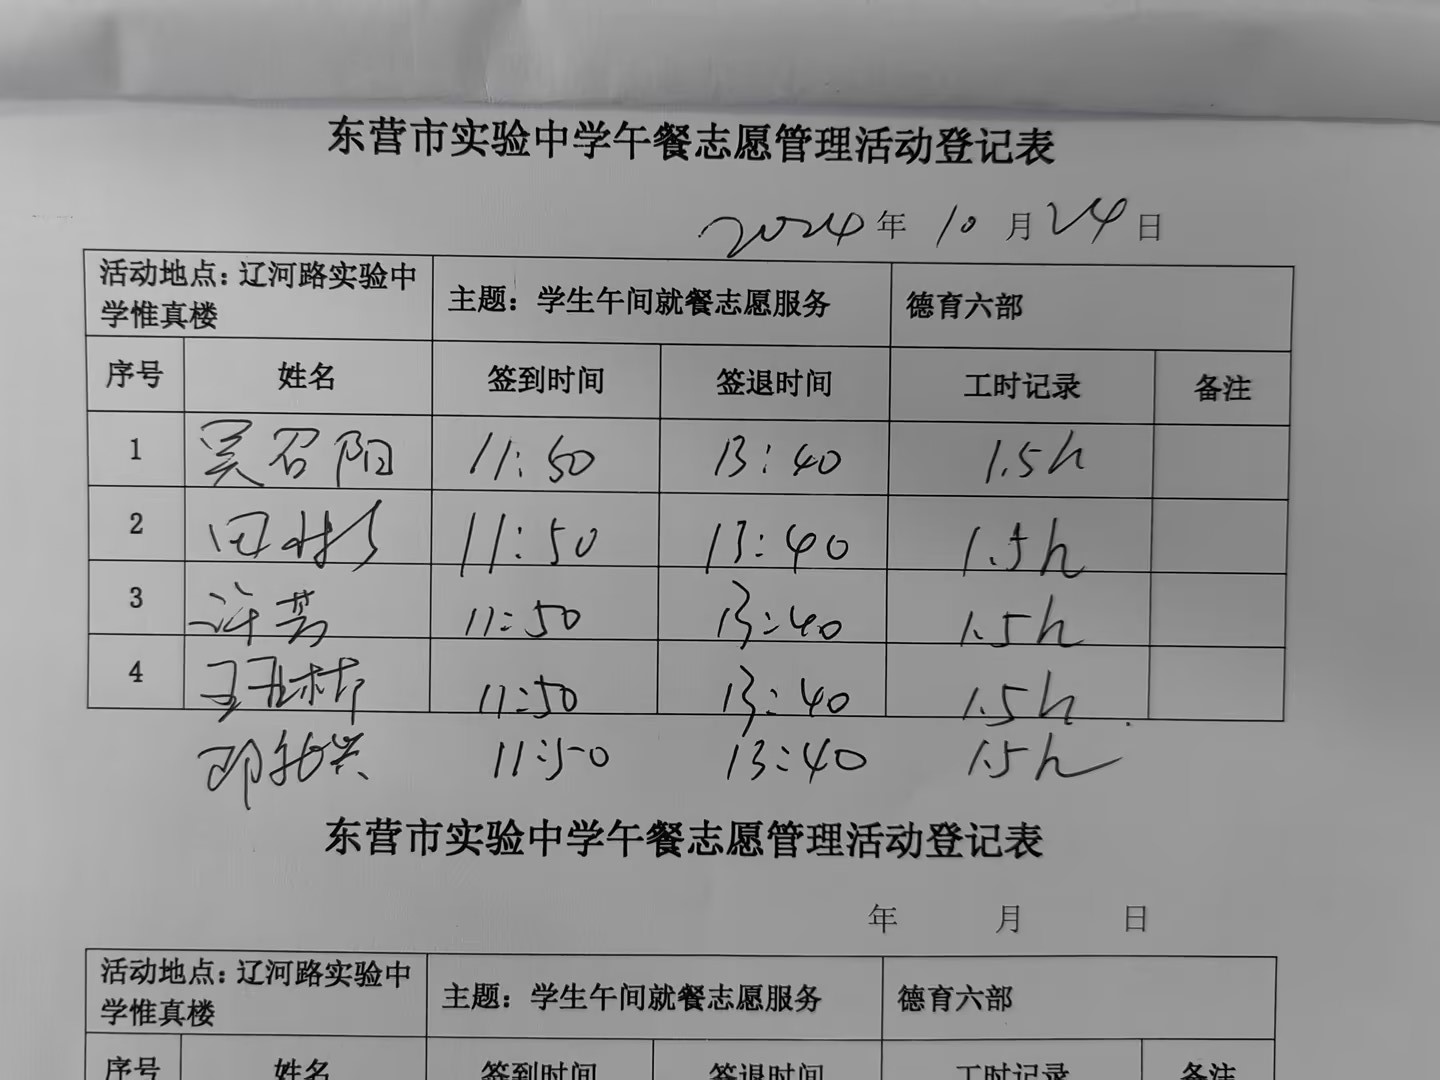 东营市实验中学午餐志愿管理活动登记表
2024年10月24日
活动地点：辽河路实验中
学惟真楼
主题：学生午间就餐志愿服务
德育六部
序号 姓名 签到时间 签退时间 工时记录 备注
1 吴召阳 11:50 13:40 1.5h
2 田彬 11:50 13:40 1.5h
3 许芸 11:50 13:40 1.5h
4 王 11:50 13:40 1.5h
邓 11:50 13:40 1.5h
东营市实验中学午餐志愿管理活动登记表
年 月 日
活动地点：辽河路实验中
学惟真楼
主题：学生午间就餐志愿服务
德育六部
序号 姓名 签到时间 签退时间 工时记录 备注